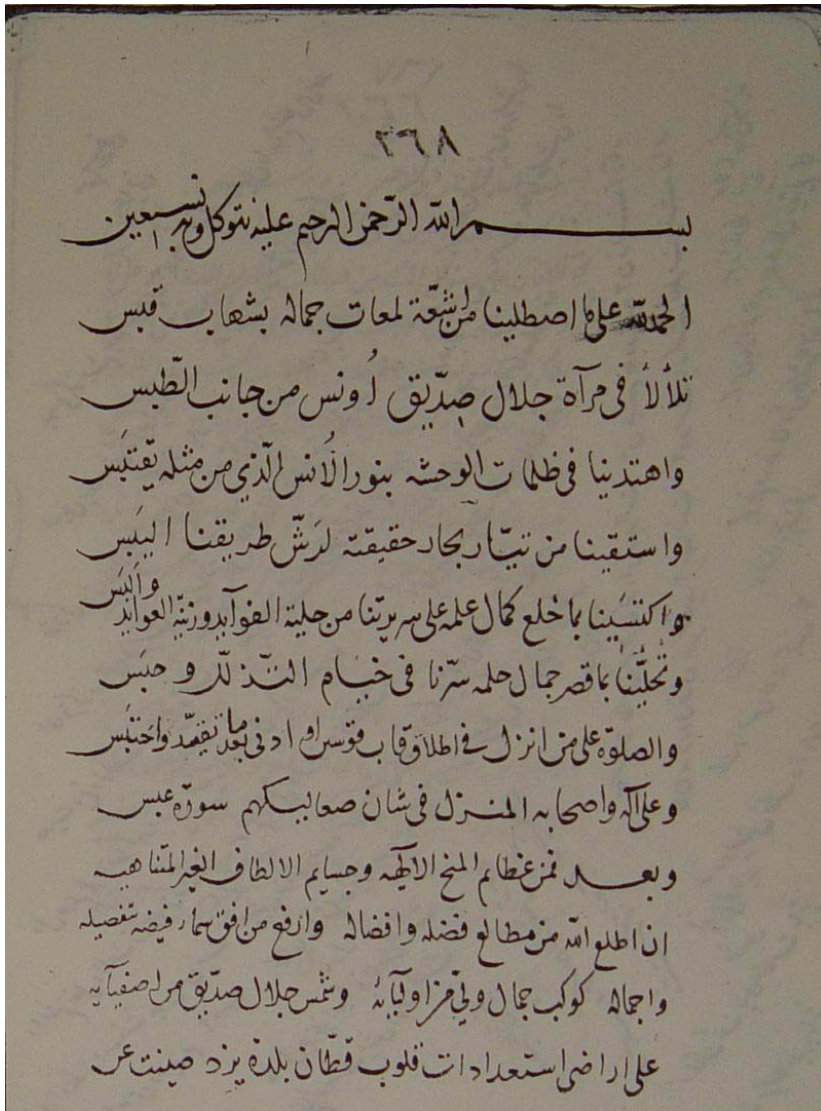 ٣٦٨
بسم الله الرحمن الرحيم عليه نتوكل وبه نستعين
الحمد لله على ما اصطلينا من اشعّة لمعات جماله بشهاب قبس
تلألأ فى مرآة جلال صدّيق اُونس من جانب الطبس
واهتدينا فى ظلمات الوحشه بنور الاُنس الّذي من مثله يقتبَس
واستقينا من تيّار بحار حقيقته لرَشّ طريقنا اليبَس
واكتسَينا بما خلع كمال علمه على سريرتنا من حلية الفوآيد وزينة العوايد والبَس
وتحليّنا بما قصر جمال حلمه سرّنا فى خيام التذلّل وحبَس
والصلوة على من انزل فى اطلاق قاب قوسين او ادنى بعد ما تقيّد واحتبَس
وعلى آله واصحابه المنزل فى شان صعاليكهم سورة عبس
وبعد فمن عظايم المنح الالهيّه وجسايم الالطاف الغير المتناهيه
ان اطلع الله من مطالع فضله وافضاله وارفع من افق سمآء فيضه تفصيله
واجماله كوكب جمال وليّ من اوليآئه وشمس جلال صدّيق من اصفيآيه
على اراضى استعدادات قلوب قطّان بلدة يزد صينت عن